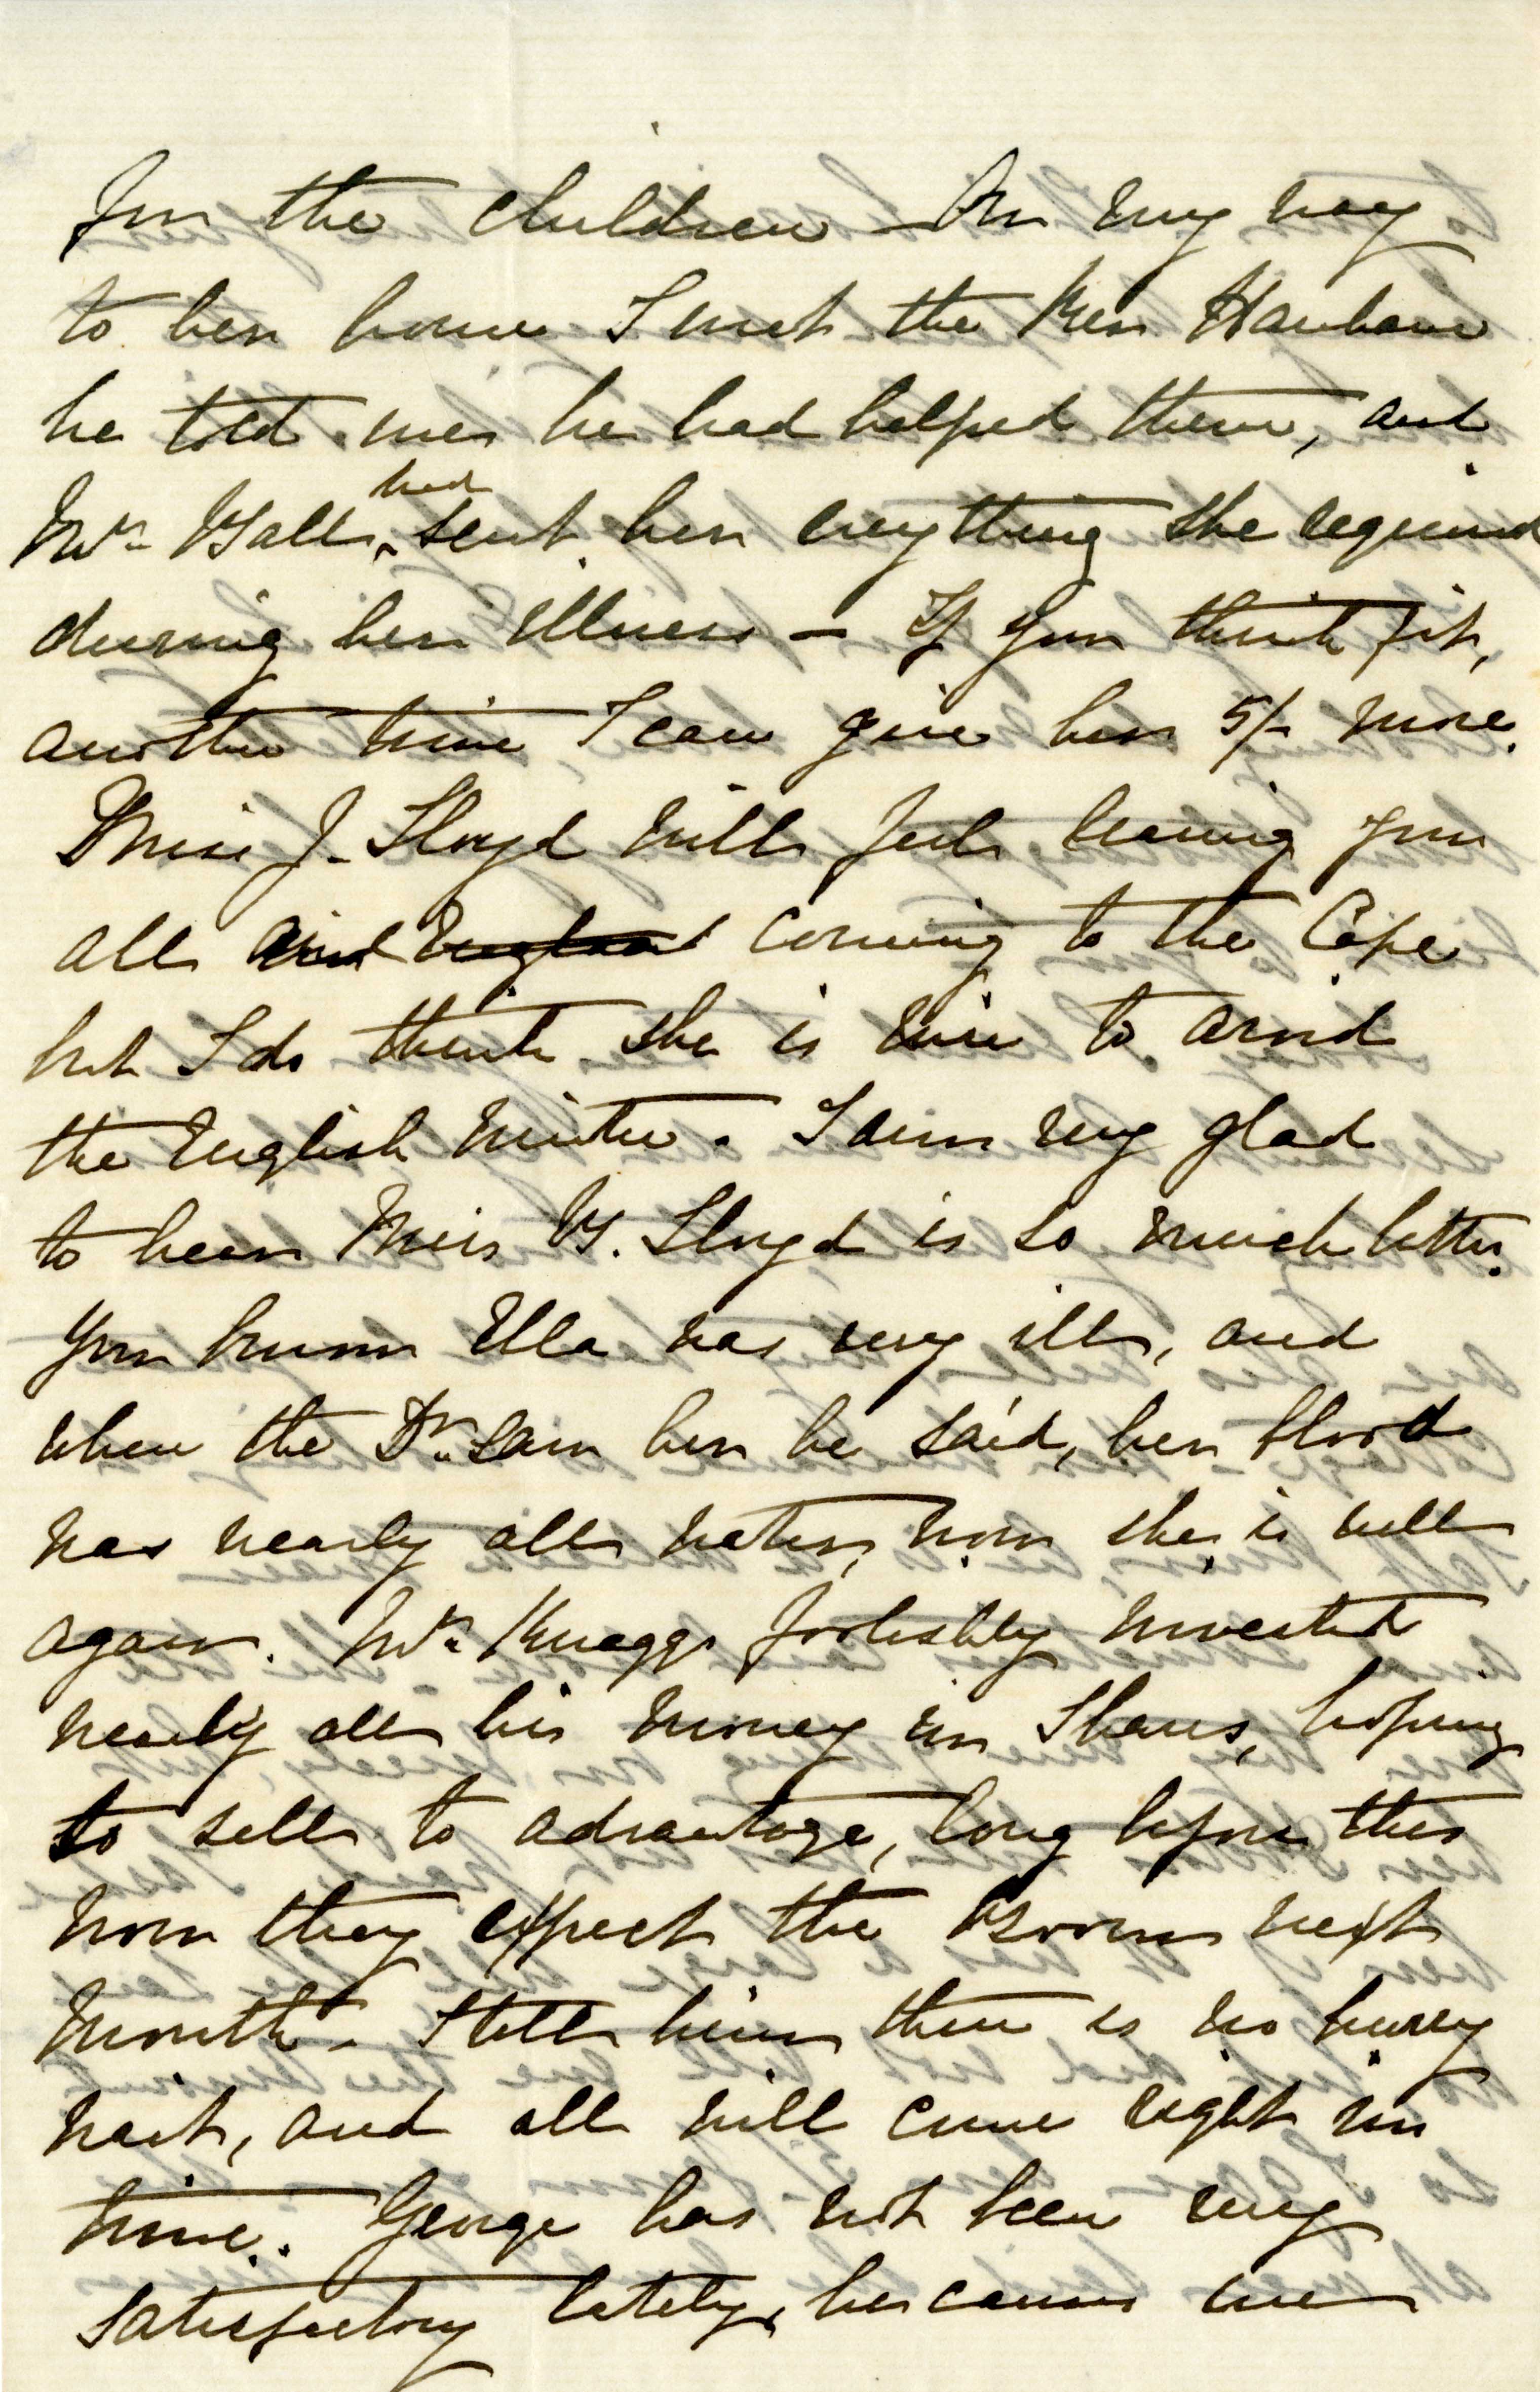 for the children — On my way
to her house I met the Rev Hanham
he told me he had helped them, and
Mrs Ball had sent her everything she required
during her illness — If you think fit,
another time I can give her 5/- more.
Miss J. Lloyd will feel leaving you
all and England coming to the Cape
but I do think she is wise to avoid
the English winter. I am very glad
to hear Miss B. Lloyd is so much better.
You know Ella was very ill, and
when the Dr. saw her he said, her blood
was nearly all water, now she is well
again. Mr. Knaggs foolishly invested
nearly all his money in Shares, hoping
to sell to advantage, long before this
now they expect the Boom next
month. I tell him there is no hurry
wait, and all will come right in
time. George has not been very
satisfactory lately, because we